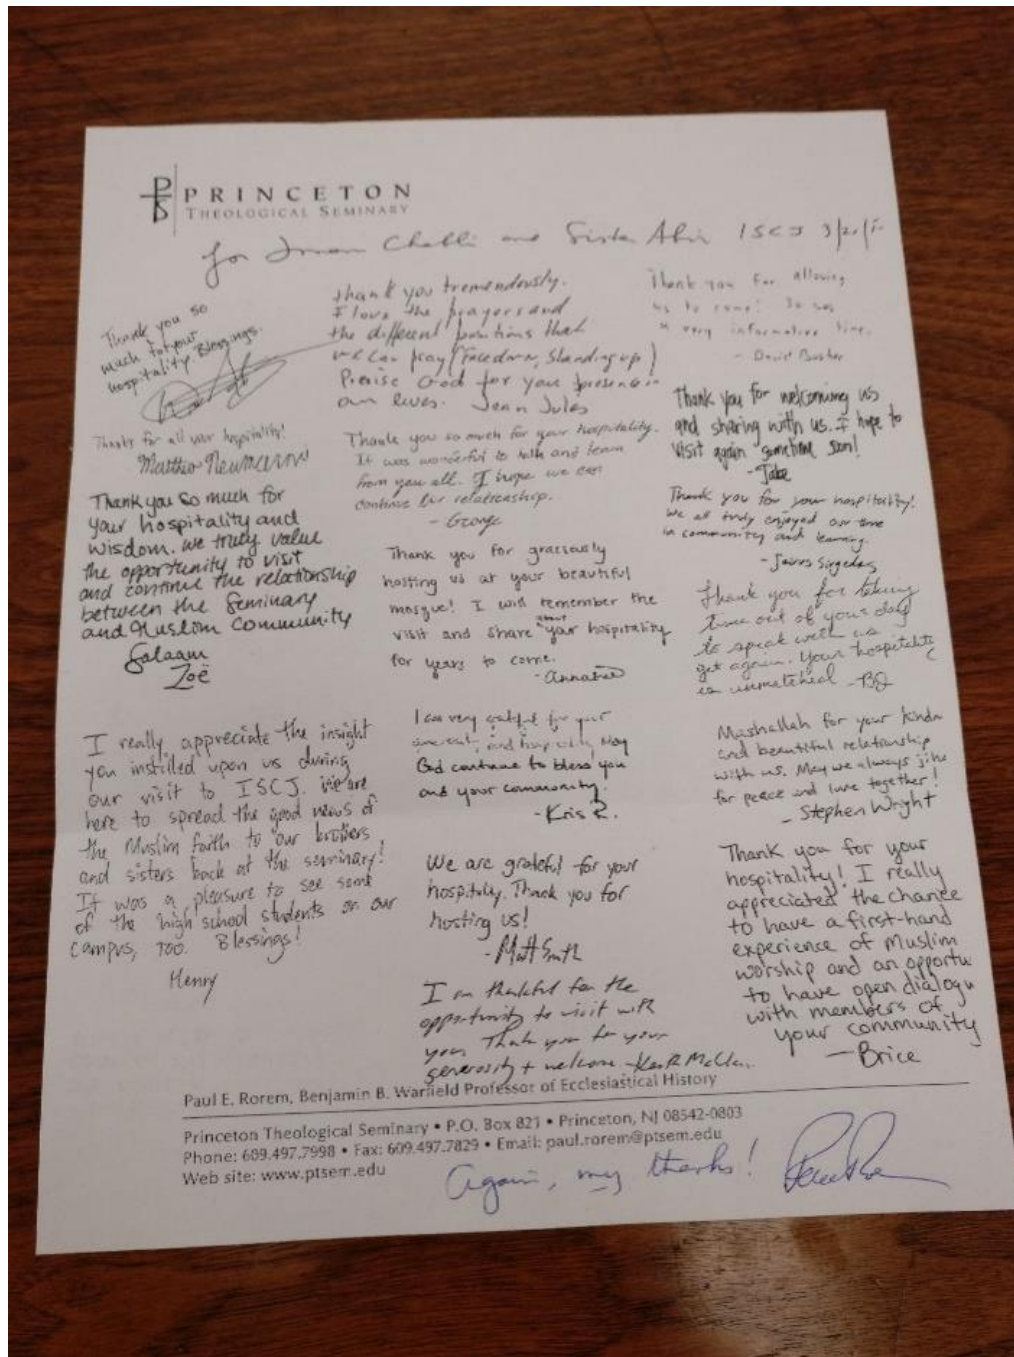 PRINCETON
THEOLOGICAL SEMINARY
for Imam Chebli and Sister ISCJ
Thank you so
much for your
hospitality. Blessings.
Thanks for all your hospitality!
Matthew Neumann
Thank you so much for
your hospitality and
wisdom. We truly value
the opportunity to visit
and continue the relationship
between the Seminary
and Muslim Community
Salaam
Zoë
I really appreciate the insight
you instilled upon us during
our visit to ISCJ. We are
here to spread the good news of
the Muslim faith to our brothers
and sisters back at the seminary!
It was a pleasure to see some
of the high school students on our
campus, too. Blessings!
Henry
thank you tremendously.
I love the prayers and
the different positions that
we can pray (Facedown, Standing up)
Praise God for your presence in
our lives. Jean Jules
Thank you so much for your hospitality.
It was wonderful to talk and learn
from you all. I hope we can
continue our relationship.
- George
Thank you for graciously
hosting us at your beautiful
mosque! I will remember the
visit and share about your hospitality
for years to come.
I am very grateful for your
and hospitality. May
God continue to bless you
and your community.
- Kris R.
We are grateful for your
hospitality. Thank you for
hosting us!
- Matt Smith
I am thankful for the
opportunity to visit with
you. Thank you for your
generosity + welcome
Thank you for allowing
us to come! It was
a very informative time.
- David
Thank you for welcoming us
and sharing with us. I hope to
visit again sometime soon!
- Jake
Thank you for your hospitality!
We all truly enjoyed our time
in community and learning.
- James
Thank you for taking
time out of your day
to speak with us
yet again. Your hospitality
is unmatched - BJ
Mashallah for your kind
and beautiful relationship
with us. May we always
for peace and love together!
- Stephen Wright
Thank you for your
hospitality! I really
appreciated the chance
to have a first-hand
experience of Muslim
worship and an opportu
to have open dialogu
with members of
your community
- Brice
Paul E. Rorem, Benjamin B. Warfield Professor of Ecclesiastical History
Princeton Theological Seminary • P.O. Box 821 • Princeton, NJ 08542-0803
Phone: 609.497.7998 • Fax: 609.497.7829 • Email: paul.rorem@ptsem.edu
Web site: www.ptsem.edu
Again, my thanks!